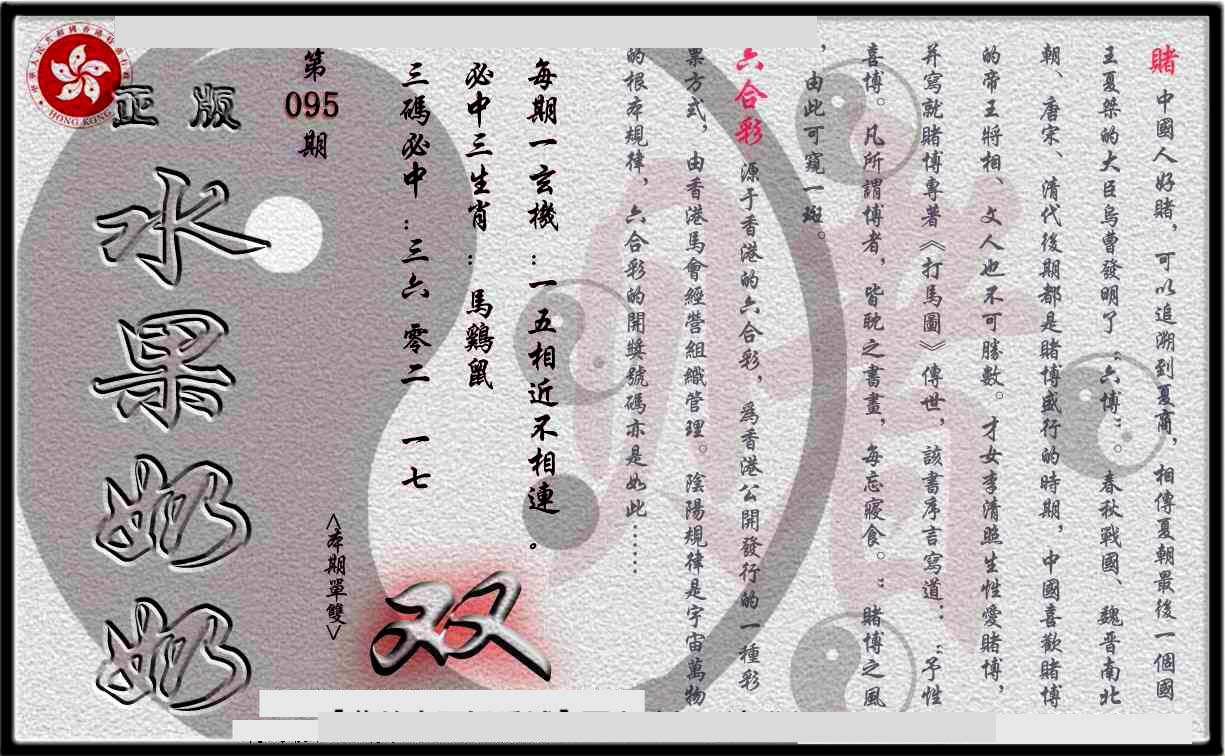 賭 中國人好賭，可以追溯到夏商，相傳夏朝最後一個國
王夏桀的大臣烏曹發明了“六博”。春秋戰國、魏晋南北
朝、唐宋、清代後期都是賭博盛行的時期，中國喜歡賭博
的帝王將相、文人也不可勝數。才女李清照生性愛賭博，
并寫就賭博專著《打馬圖》傳世，該書序言寫道：“予性
喜博。凡所謂博者，皆耽之晝晝，每忘寢食。”賭博之風
，由此可窺一斑。
六合彩 源于香港的六合彩，爲香港公開發行的一種彩
票方式，由香港馬會經營組織管理。陰陽規律是宇宙萬物
的根本規律，六合彩的開獎號碼亦是如此......
每期一玄機：一五相近不相連。
必中三生肖：馬鷄鼠
三碼必中：三六 零二 一七
<本期單雙>
双
第
095
期
正版
水果奶奶
HONG KONG